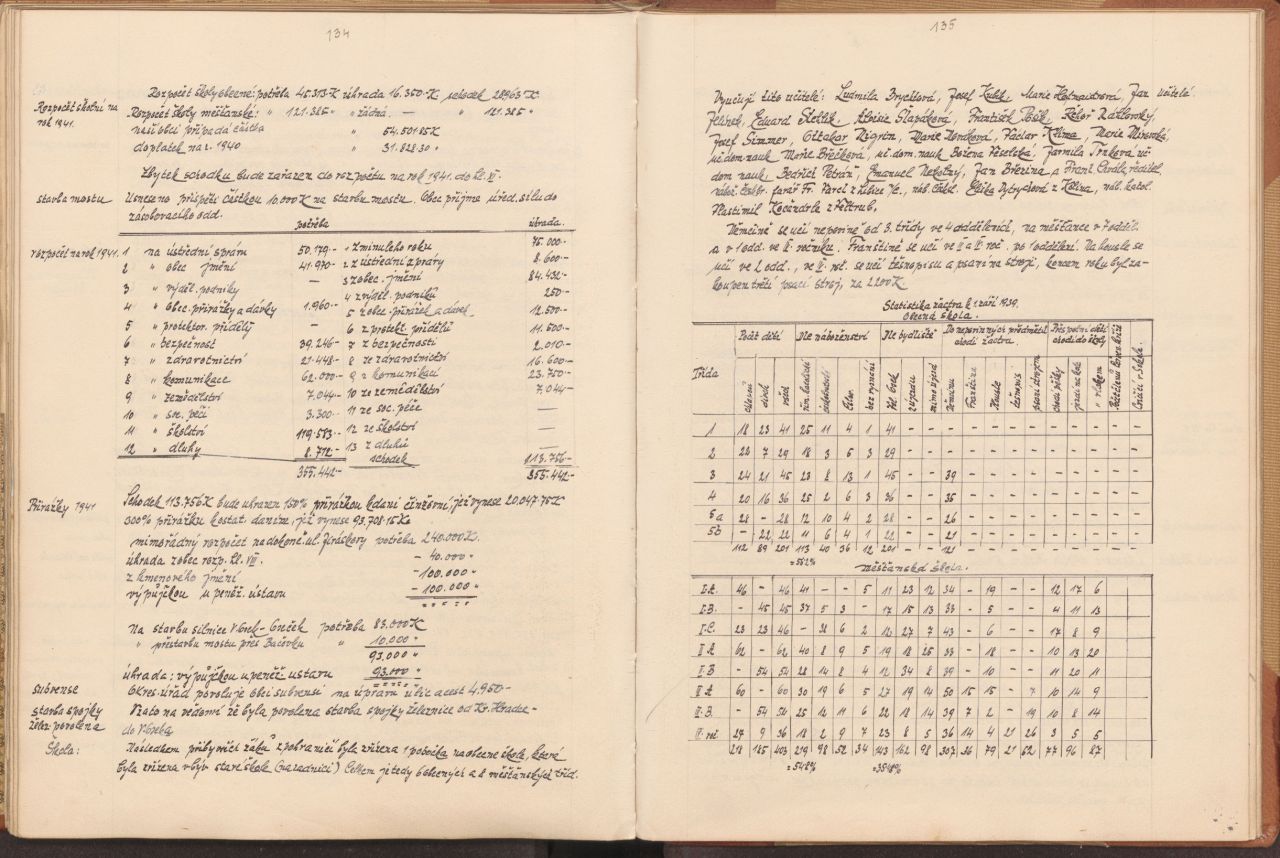 134
Rozpočet školy obecné: potřeba 45.313 K úhrada 16.350 K schodek 28963 K
Rozpočet školní na
rok 1941.
Rozpočet školy měšťanské: " 121.385 " " žádná — " 121.385 "
naší obci připadá částka " 54.501 85 K
doplatek na r. 1940 " 31.828.30 "
Zbytek schodku bude zařazen do rozpočtu na rok 1941. do kl. VI.
stavba mostu Usneseno přispěti částkou 10.000 K na stavbu mostu. Obec přijme úřed. sílu do
zásobovacího odd.
potřeba úhrada.
rozpočet na rok 1941. 1 na ústřední správu 50.179- 1 z minulého roku 75.000-
2 " obec jmění 41.970- 2 z ústřední zprávy 8.600-
3 " výděl. podniky — 3 z obec. jmění 84.432-
4 " obec. přirážky a dávky 1.960- 4 z výděl. podniků 250-
5 " protektor. příděly — 5 z obec. přirážek a dávek 12.500-
6 " bezpečnost 39.246- 6 z protekt. přídělů 11.500-
7 " zdravotnictví 21.448- 7 z bezpečnosti 2.010-
8 " komunikace 62.000- 8 ze zdravotnictví 16.600-
9 " zemědělství 7.044- 9 z komunikací 23.750-
10 " soc. péči 3.300- 10 ze zemědělství 7.044-
11 " školství 119.583- 11 ze soc. péče —
12 " dluhy 8.712- 12 ze školství —
13 z dluhů —
schodek 113.756-
355.442- 355.442-
Přirážky 1941 Schodek 113.756 K bude uhrazen 150% přirážkou k dani činžovní, jež vynese 20.047.75 K
300% přirážku k ostat. daním, jež vynese 93.708.15 K.
mimořádný rozpočet na dokonč. ul. Jiráskovy potřeba 240.000 K.
úhrada z obec rozp. kl. VIII. - 40.000 "
z kmenového jmění - 100.000 "
výpůjčkou u peněž. ústavu - 100.000 "
Na stavbu silnice V. Osek - Oseček potřeba 83.000 K
" přestavbu mostu přes Bačovku " 10.000 "
93.000 "
úhrada: výpůjčkou u peněž. ústavu 93.000 "
subvence Okres. úřad povoluje obci subvenci na úpravu ulic a cest 4.950-
stavba spojky
želez. povolena
Vzato na vědomí že byla povolena stavba spojky železnice od Kr. Hradce -
do V. Oseka
Škola: Následkem přibyvších žáků z pohraničí byla zřízena 1 pobočka na obecné škole, která
byla zřízena v býv. staré škole (na radnici) Celkem je tedy 6 obecných a 8 měšťanských tříd.
135
Vyučují tito učitelé: Ludmila Brychtová, Josef Kuhl, Marie Hofmanová, Jan učitelé
Jelínek, Eduard Steklík, Aloisie Slapáková, František Polák, Libor Karlovský,
Josef Simmer, Ottokar Nigrin, Marie Horáková, Václav Klíma, Marie Mirovská,
uč. dom. nauk Marie Břečková, uč. dom. nauk Božena Veselská, Jarmila Trnková uč.
dom nauk, Bedřich Petráň, Emanuel Nekolný, Jan Březina a Frant. Chvála, ředitel.
Vlastimil Kočandrle z Veltrub.
Němčině se učí nepovinně od 3. třídy ve 4 odděleních, na měšťance v 7 odděl.
a v 1 odd. ve IV. ročníku. Franštině se učí ve II a III roč. po 1 oddělení. Na housle se
učí ve 2 odd., ve IV. roč. se učí těsnopisu a psaní na stroji, koncem roku byl za-
koupen třetí psací stroj, za 2200 K
Statistika žactva k 1 září 1939.
Obecná škola.
Třída Počet dětí Dle náboženství Dle bydliště Do nepovinných předmětů
chodí žactva. Přespolní děti
chodí do školy
chlapců dívek všech řím. katolické českobratrské Českosl. bez vyznání Vel. Osek z újezdu mimo újezd Němčina Franština Housle těsnopis psaní strojem chodí pěšky jezdí na kole " vlakem
1 18 23 41 25 11 4 1 41 - - - - - - - - - - - -
2 22 7 29 18 3 5 3 29 - - - - - - - - - - - -
3 24 21 45 23 8 13 1 45 - - 39 - - - - - - - - -
4 20 16 36 25 2 6 3 36 - - 35 - - - - - - - - -
5a 28 - 28 12 10 4 2 28 - - 26 - - - - - - - - -
5b - 22 22 11 6 4 1 22 - - 21 - - - - - - - - -
112 89 201 113 40 36 12 201 - - 121 - - - - - - - - -
= 56.2%
Měšťanská škola.
I.A. 46 - 46 41 - - 5 11 23 12 34 - 19 - - 12 17 6
I.B. - 45 45 37 5 3 - 17 15 13 33 - 5 - - 4 11 13
I.C. 23 23 46 - 38 6 2 12 27 7 43 - 6 - - 17 8 9
II A 62 - 62 40 8 9 5 19 18 25 33 - 18 - - 10 13 20
II B - 54 54 28 14 8 4 12 34 8 39 - 10 - - 11 20 11
III A 60 - 60 30 19 6 5 27 19 14 50 15 15 - 7 10 14 9
III. B. - 54 54 25 12 11 6 22 18 14 39 7 2 - 19 10 8 14
IV. roč 27 9 36 18 2 9 7 23 8 5 36 14 4 21 26 3 5 5
218 185 403 219 98 52 34 143 162 98 307 36 79 21 52 77 96 87
= 54.8% = 35.48%